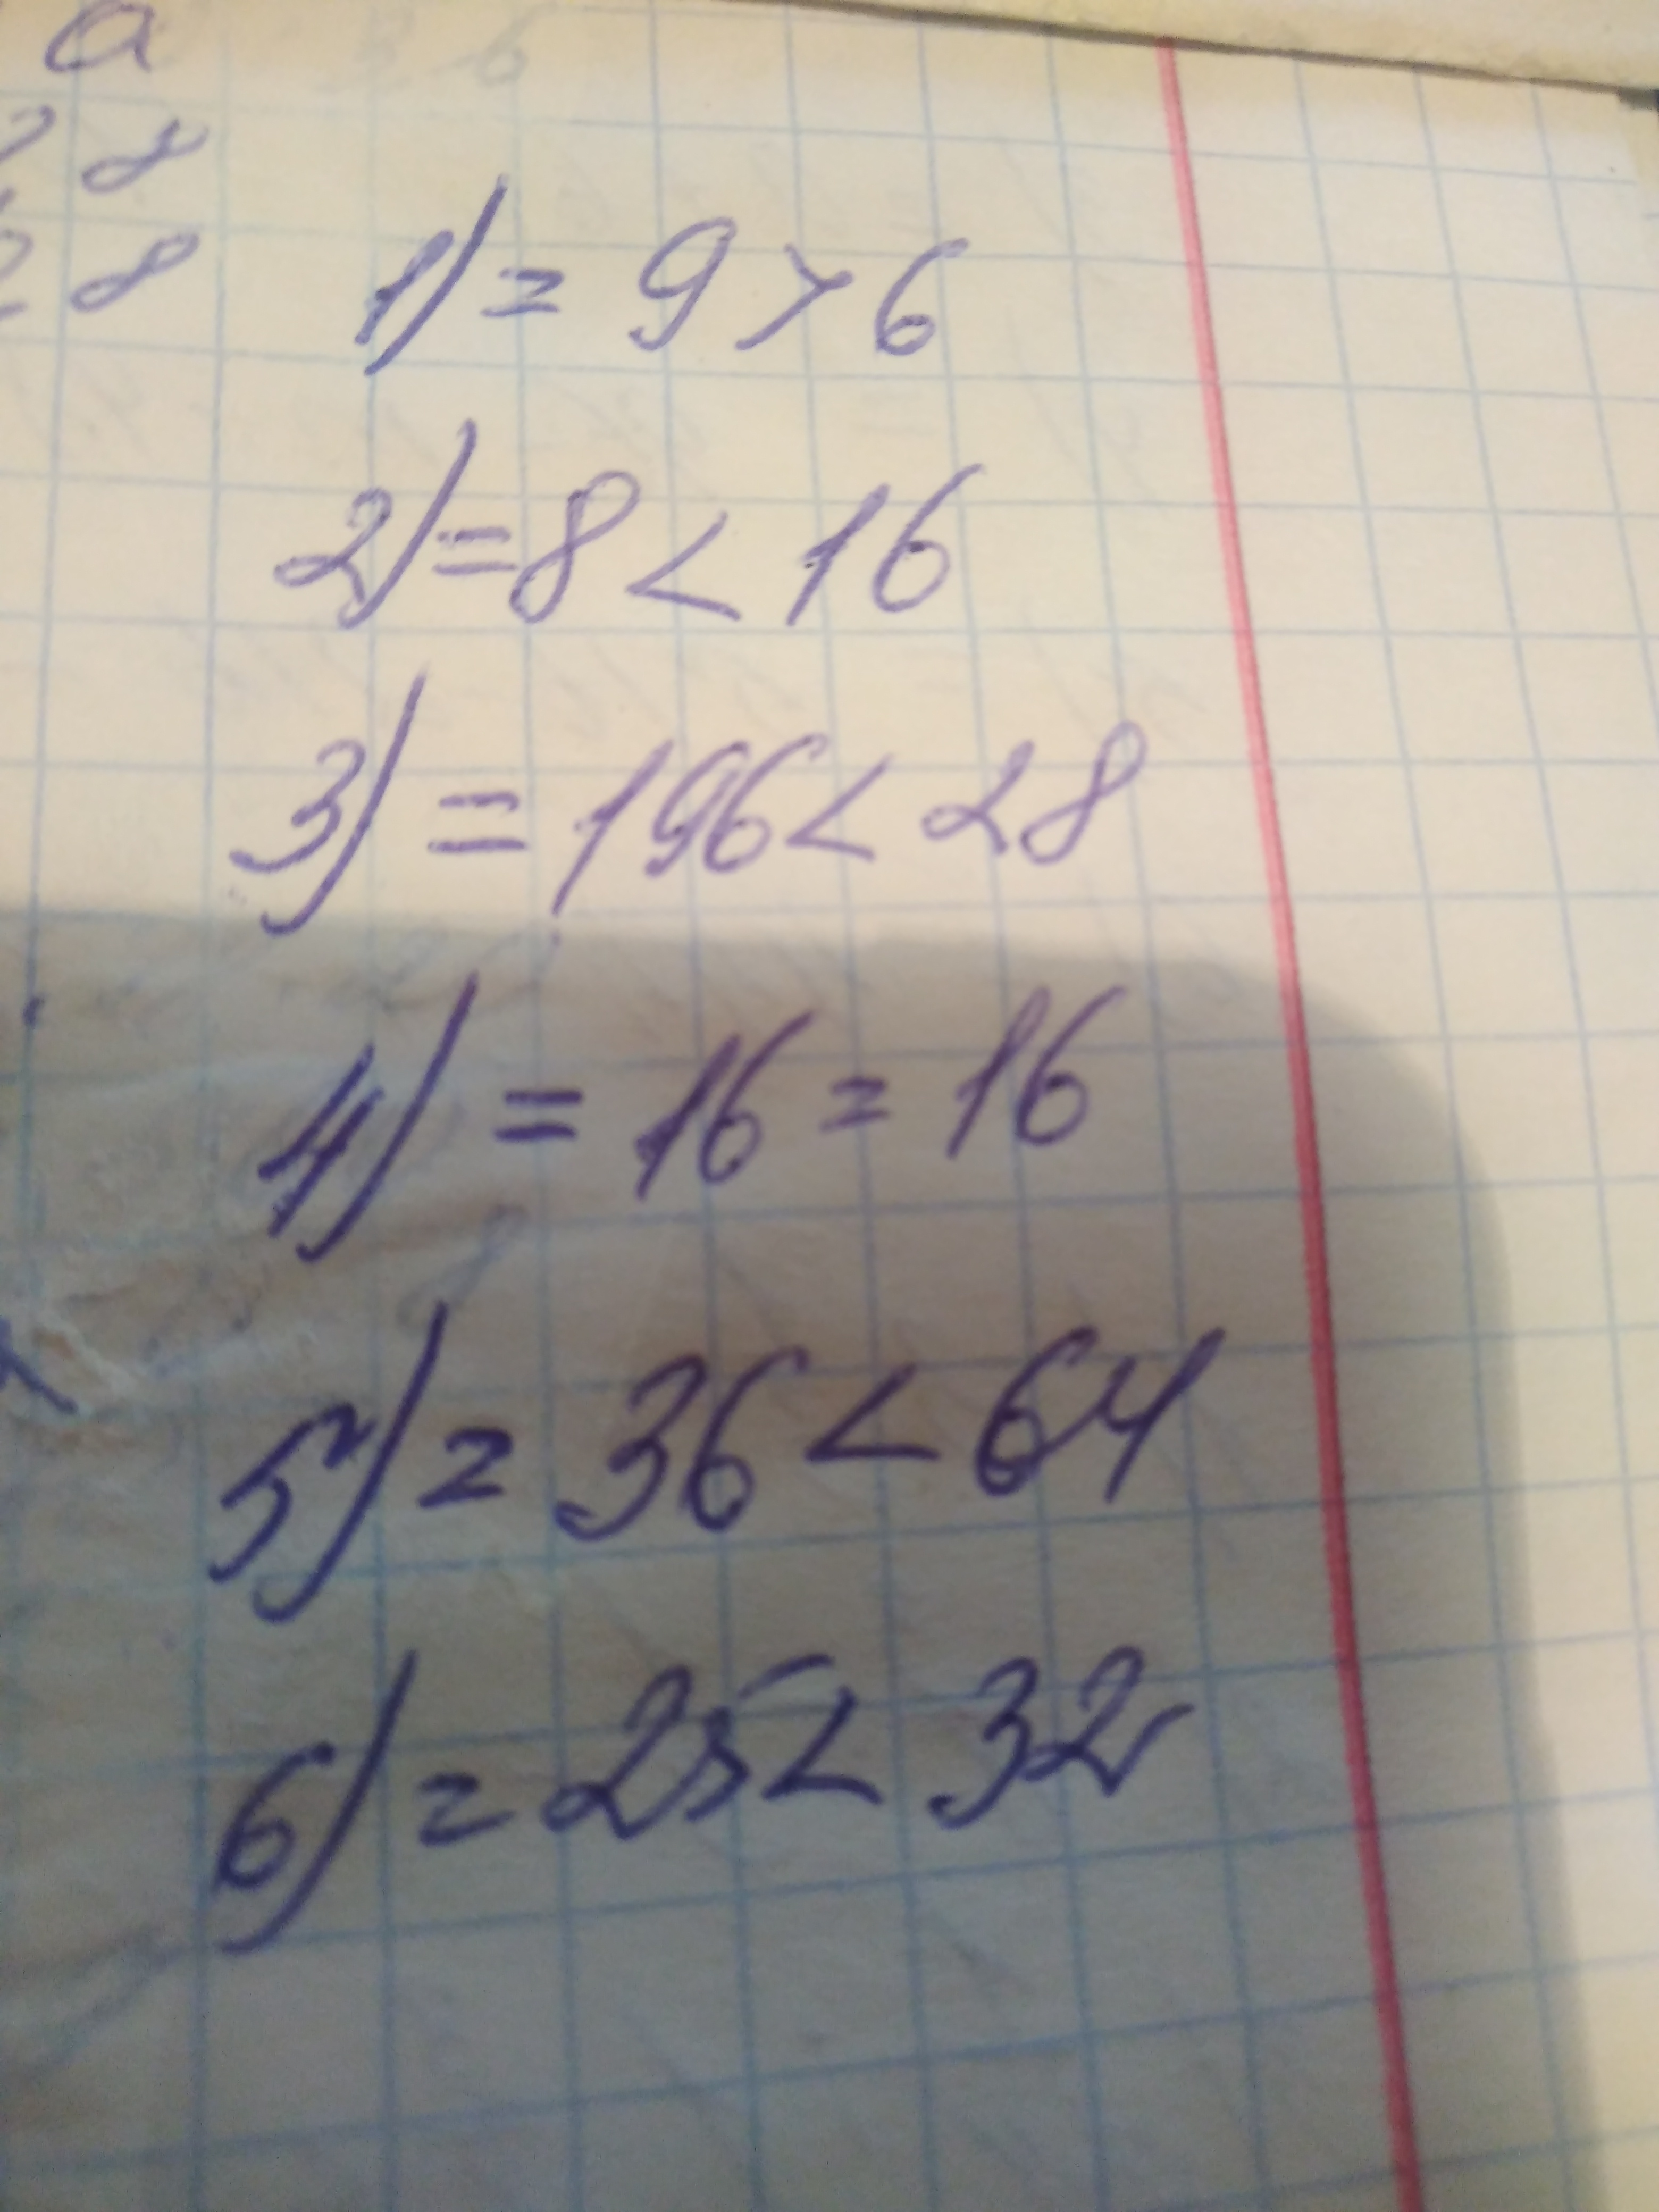 а
8
8
1) = 9 > 6
2) = 8 < 16
3) = 196 < 28
4) = 16 = 16
5) = 36 < 64
6) = 25 < 32